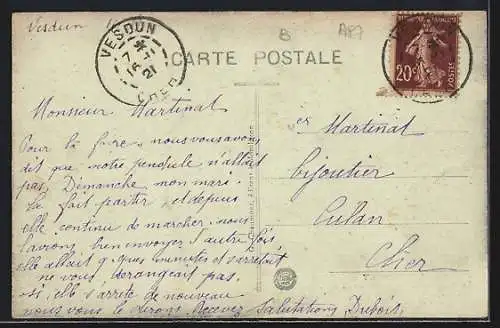 Vesdun
VESDUN
7 *
16 -11
21
CHER
CARTE POSTALE
B
20c
POSTES
Monsieur Martinat
Pour la foire, nous vous avons
dit que notre pendule n'allait
pas, Dimanche mon mari
la fait partir, et depuis
elle continue de marcher, nous
l'avions bien envoyer l'autre fois
elle allait q. ques minutes et s'arrêtait
ne vous dérangerait pas.
si, elle s'arrête de nouveau
nous vous le dirons, Recevez Salutations Dubois,
Martinat
bijoutier
Culan
Cher